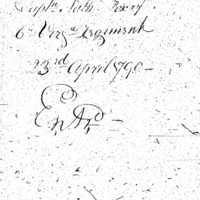 Capt. Nath
6th Virga Regiment
23rd April 1790 -
Entd -